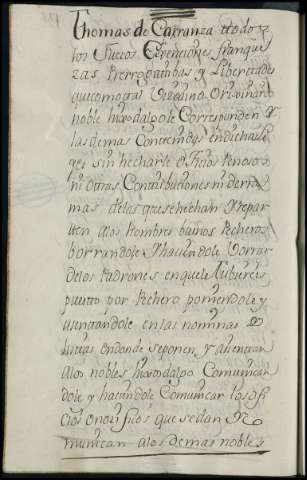 Thomas de Carranza todo
los fueros Exenciones franque
zas Prerrogatibas y Libertades
que como tal Vizcaino Originario
noble hixodalgo le Corresponden Y
las demas Contenidas en dicha le
sin hecharle
ni otras Contribuciones ni derra
mas de las que se hechan Y repar
ten a los hombres buenos Pecheros
borrandole Y haciendole Borrar
de los Padrones en que le tubiereis
puesto por Pechero poniendole y
asentandole en las nominas
listas en donde se ponen y asientan
a los nobles hixosdalgo Comunican
dole y haciendole Comunicar los ofi
cios onorificos que se dan Y Co
munican a los demas nobles